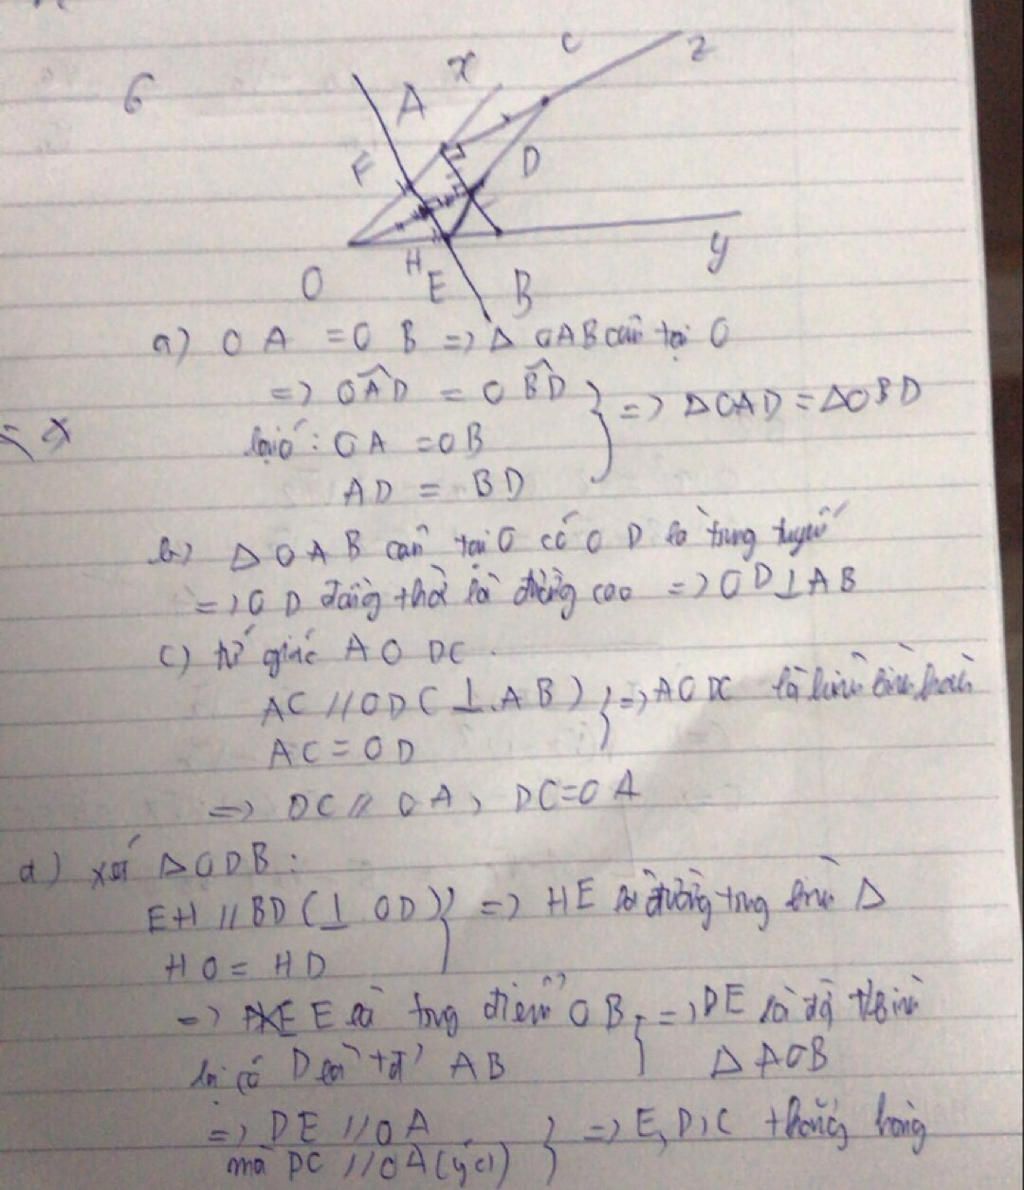 6
x
C
z
A
F
D
H
y
O
E
B
a) OA = OB => Δ OAB cân tại O
=> OÂD = OB̂D
lại có: OA = OB
AD = BD
=> ΔOAD = ΔOBD
b) Δ OAB cân tại O có OD là trung tuyến
=> OD đồng thời là đường cao => OD⊥AB
c) tứ giác AODC.
AC // OD (⊥ AB)
AC = OD
=> AODC là hình bình hành
=> DC // OA, DC=OA
d) xét ΔODB:
EH // BD (⊥ OD)
HO = HD
=> HE là đường trung bình Δ
=> E là trung điểm OB
lại có D là tđ AB
=> DE là đg t/bình
Δ AOB
=> DE // OA
mà DC // OA (ý c)
=> E, D, C thẳng hàng